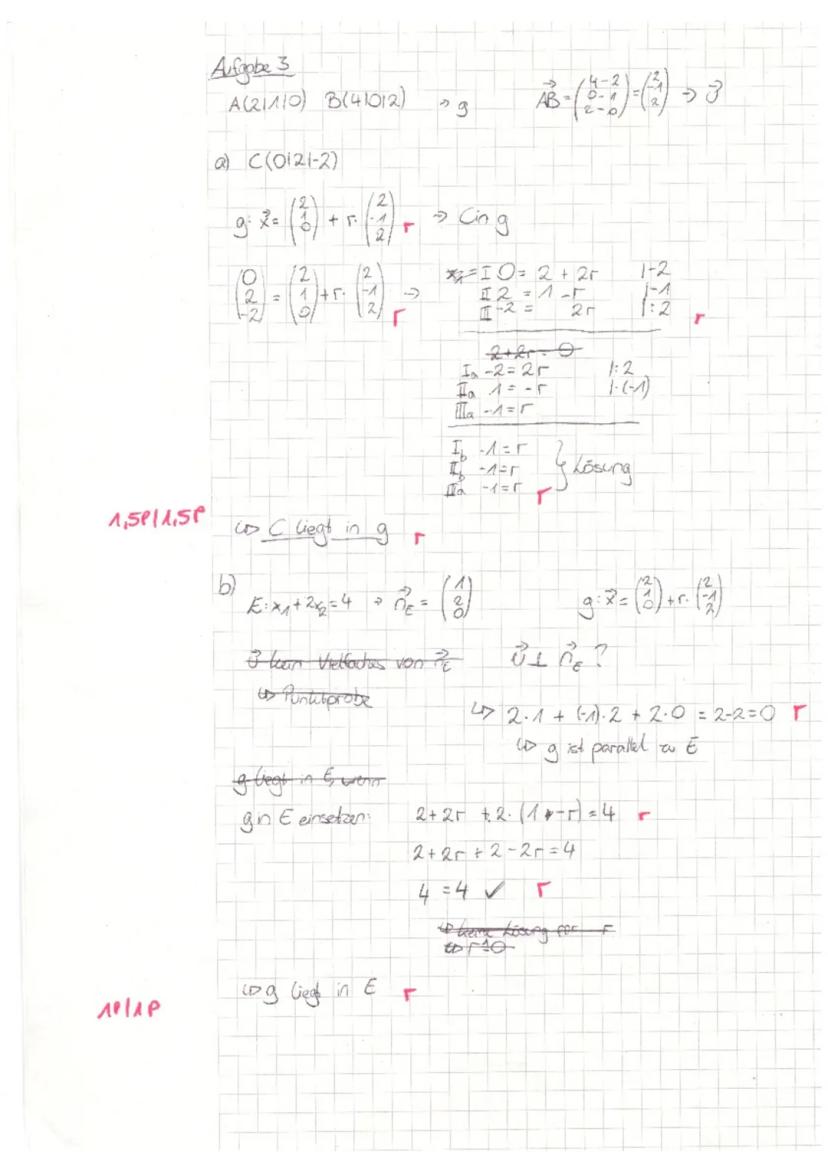 Aufgabe 3
A(2|1|0) B(4|0|2) → g AB⃗ = (4-2 0-1 2-0) = (2 -1 2) → v⃗
a) C(0|2|-2)
g: x⃗ = (2 1 0) + r· (2 -1 2) r → C in g
(0 2 -2) = (2 1 0) + r· (2 -1 2) → r
I 0 = 2 + 2r |-2
II 2 = 1 - r |-1
III -2 = 2r |:2 r
2+2r = 0
Ia -2 = 2r |:2
IIa 1 = -r |·(-1)
IIIa -1 = r
Ib -1 = r
IIb -1 = r } Lösung
IIIa -1 = r r
1,5P/1,5P
↳ C liegt in g r
b)
E: x₁ + 2x₂ = 4 → n⃗E = (1 2 0) g: x⃗ = (2 1 0) + r· (2 -1 2)
v⃗ kein Vielfaches von n⃗E v⃗ ⊥ n⃗E ?
↳ Punktprobe
↳ 2·1 + (-1)·2 + 2·0 = 2-2 = 0 r
↳ g ist parallel zu E
g liegt in E, wenn
g in E einsetzen: 2+2r + 2·(1-r) = 4 r
2+2r + 2 - 2r = 4
4 = 4 ✓ r
↳ keine Lösung für r
↳ g liegt in E r
1P/1P